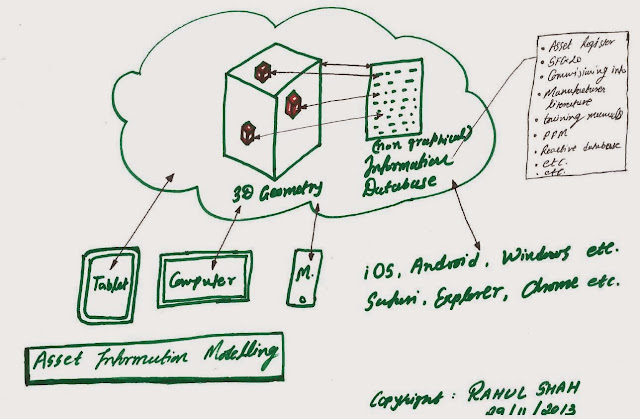 • Asset Register
• SFG20
• Commissioning info
• Manufacturer
literature
• training manuals
• PPM
• Reactive database
• etc.
• etc.
(non graphical)
Information
Database
3D Geometry
Tablet
Computer
M.
iOS, Android, Windows etc.
Safari, Explorer, Chrome etc.
Asset Information Modelling
Copyright : RAHUL SHAH
29/11/2013